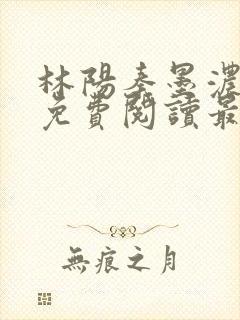 林陽秦墨濃
免費閱讀最
無痕之月